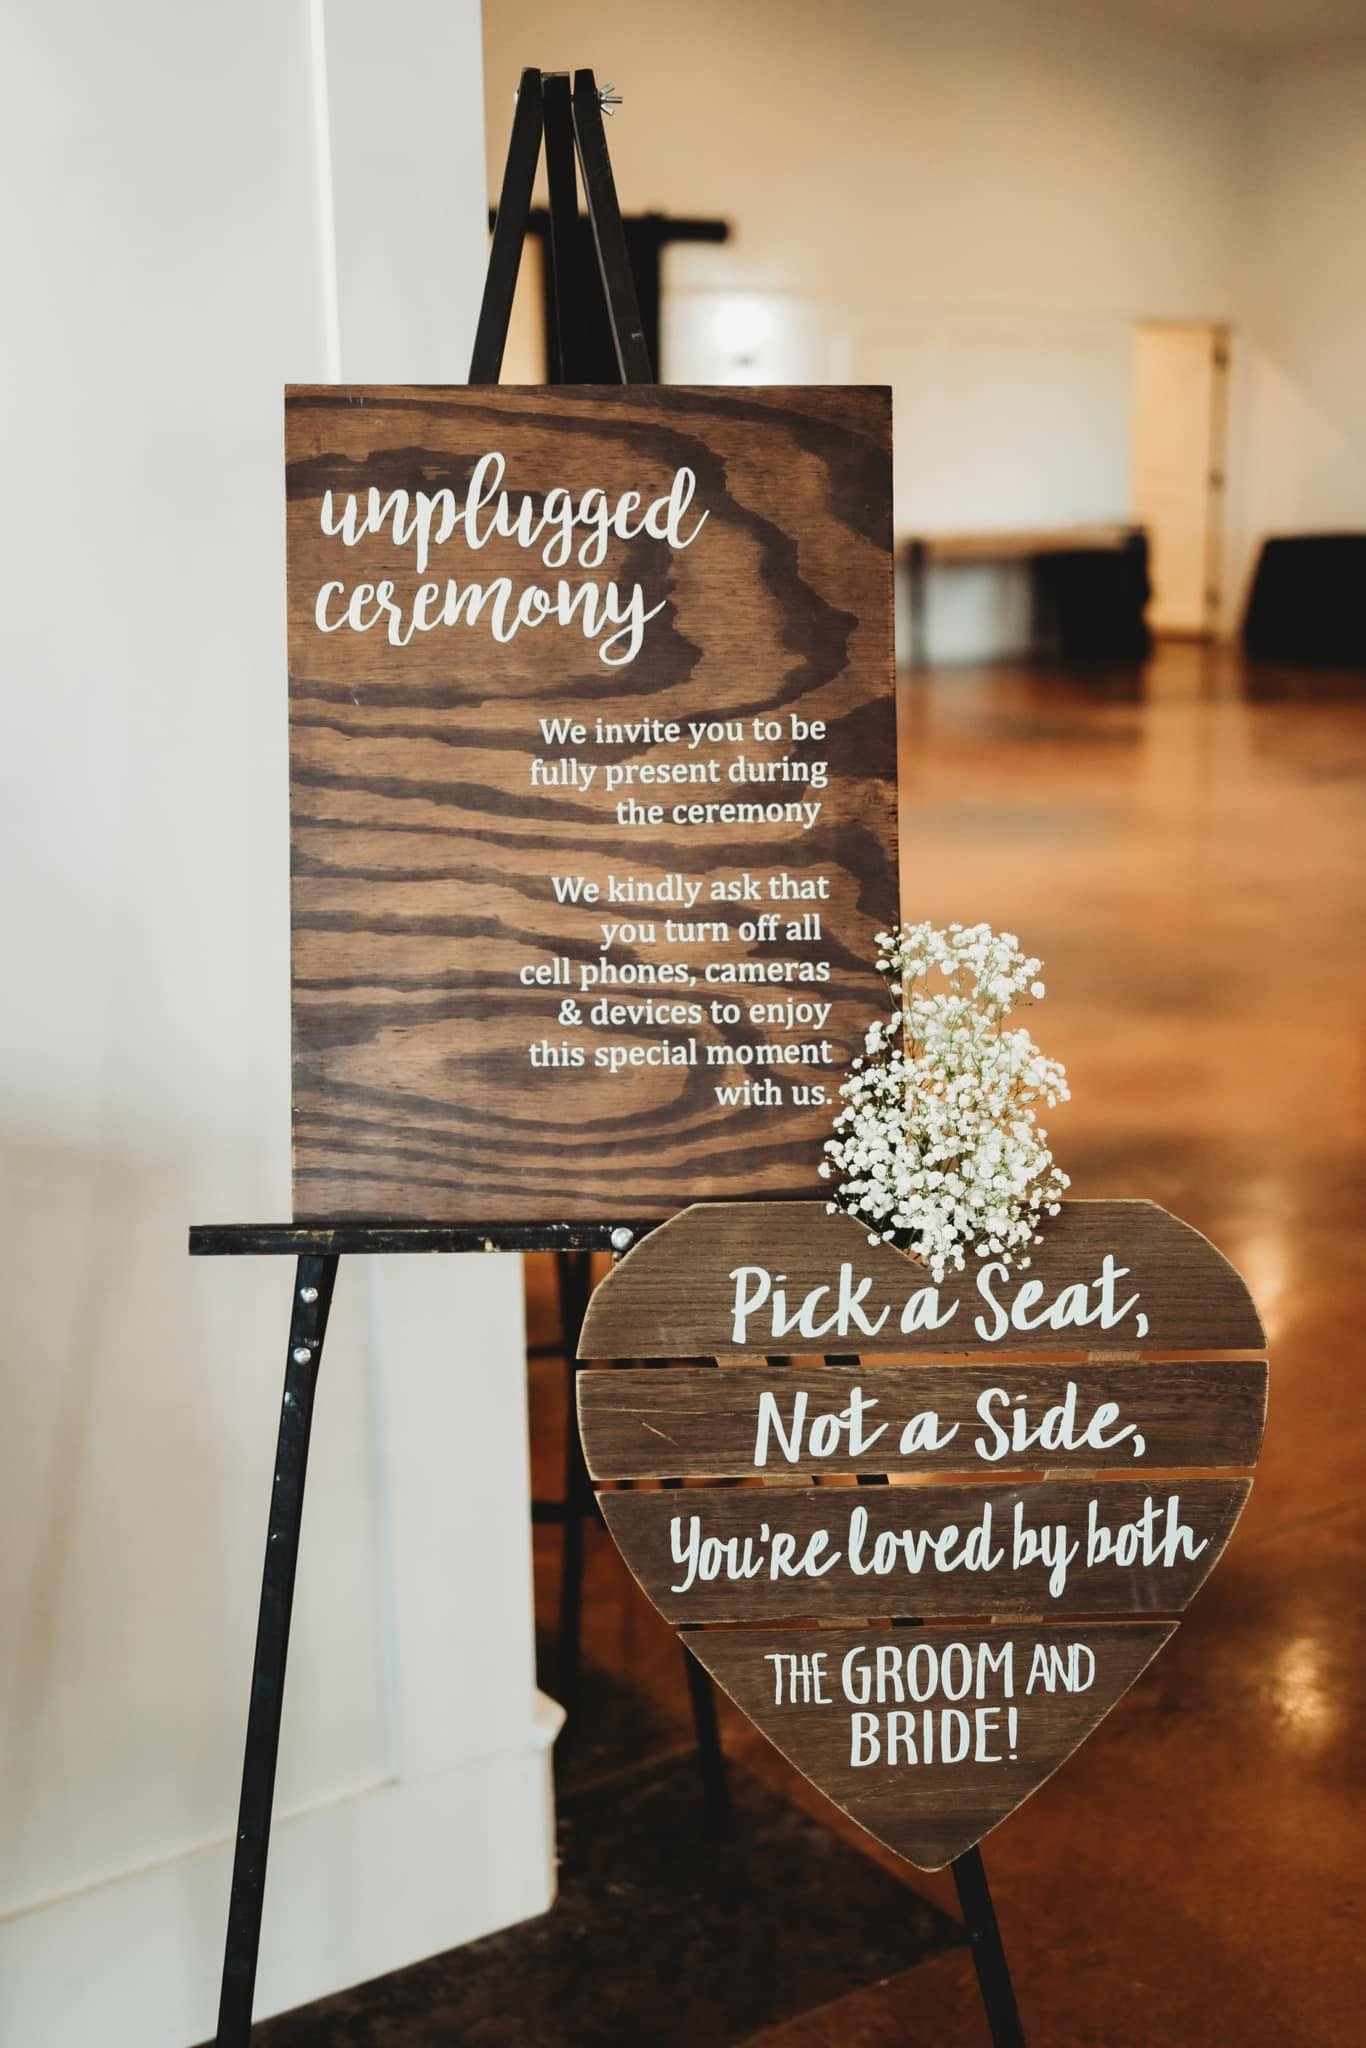 unplugged
ceremony
We invite you to be
fully present during
the ceremony
We kindly ask that
you turn off all
cell phones, cameras
& devices to enjoy
this special moment
with us.
Pick a Seat,
Not a Side,
You're loved by both
THE GROOM AND
BRIDE!